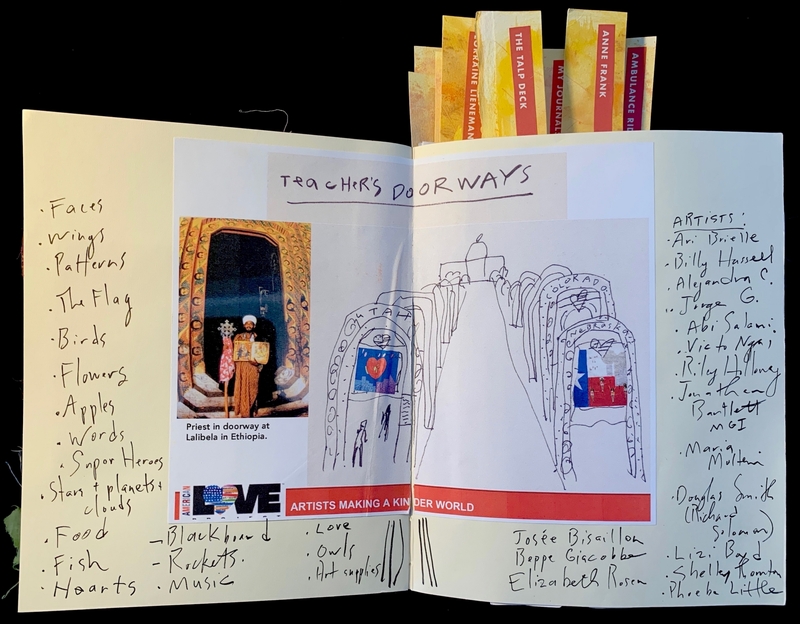 LORRAINE LIENEMAN
THE TALP DECK
MY JOURNAL
ANNE FRANK
AMBULANCE RID
TEACHER'S DOORWAYS
· Faces
· Wings
· Patterns
· The Flag
· Birds
· Flowers
· Apples
· Words
· Super Heroes
· Stars + planets +
clouds
· Food
· Fish
· Hearts
- Blackboard
- Rockets.
· Music
· Love
· Owls
· Art supplies
Priest in doorway at
Lalibela in Ethiopia.
UTAH
COLORADO
NEBRASKA
AMERICAN
LOVE
ARTISTS MAKING A KINDER WORLD
Josée Bisaillon
Beppe Giacobbe
Elizabeth Rosen
ARTISTS:
· Ari Brielle
· Billy Hassell
· Alejandra C.
· Jorge G.
· Abi Salami
· Victo Ngai
· Rily Holloway
· Jonathan
Bartlett
MGI
· Maria
Molteni
· Douglas Smith
(Richard
Solomon)
· Lizi Boyd
· Shelley
· Phoebe Little